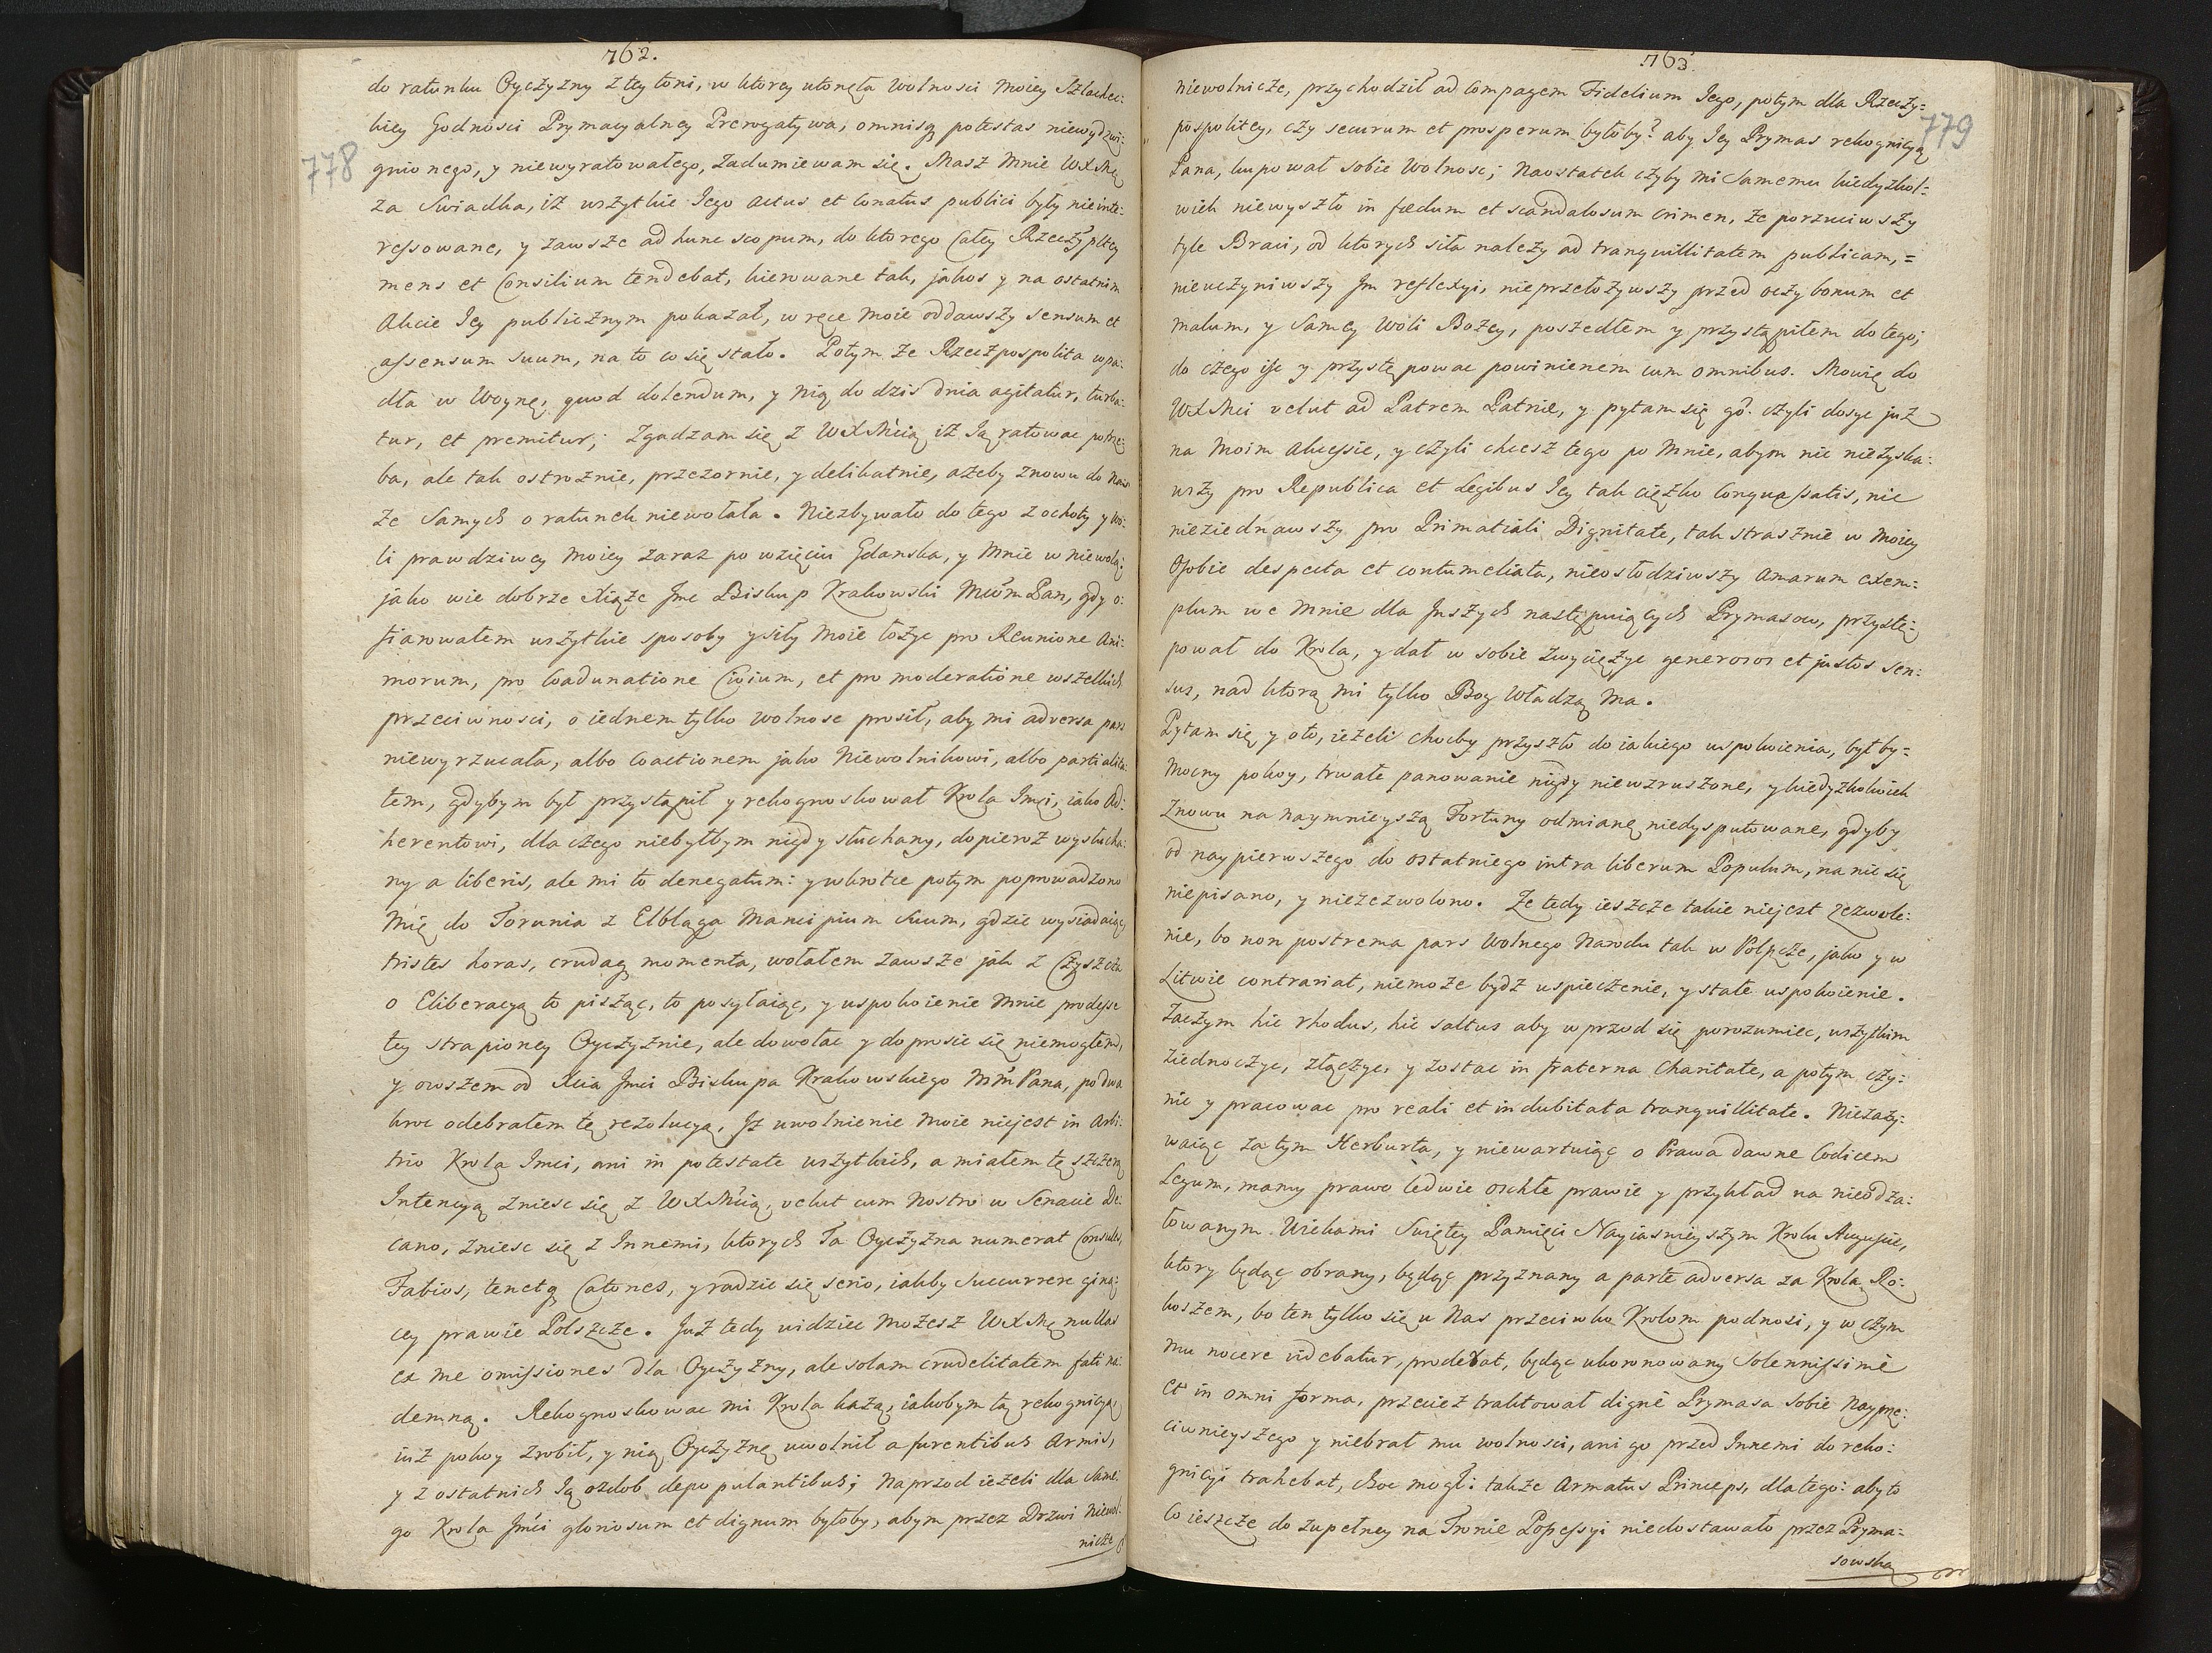 762.
778
do ratunku Oyczyzny z tey toni, w ktorey utonęła wolnosci moiey Szlachec:
kiey Godności Prymacyalney Prerogatywa, omnisq potestas niewydzwi:
gnionego, y niewyratowałego, zadumiewam się. Masz mnie WXMć
za Swiadka, iż wszytkie Iego actus et conatus publici były nieinte:
ressowane, y zawsze ad hunc scopum, do ktorego całey Rzeczyplltey
mens et Consilium tendebat, kierowane tak, jakos y na ostatnim
Akcie Iey publicznym pokazał, w ręce moie oddawszy sensum et
assensum suum, na to co się stało. Potym że Rzeczpospolita wpa:
dła w Woynę, quod dolendum, y nią do dzis dnia agitatur, turba:
tur, et premitur; zgadzam się z WXMcią iż Ią ratowac potrze:
ba, ale tak ostroznie, przezornie, y delikatnie, azeby znowu do nas
ze samych o ratunek niewołała. Niezbywało do tego z ochoty y wo:
li prawdziwey moiey zaraz po wzięciu Gdanska, y mnie w niewolą;
jako wie dobrze Xiąze Jmc Biskup Krakowski MwmPan, gdy o:
fiarowałem wszytkie sposoby y siły moie łożyc pro Reunione Ani:
morum, pro Coadunatione Civium, et pro moderatione wszelkich
przeciwnosci, o iednem tylko wolnosc prosił, aby mi adversa pars
niewyrzucała, albo Coactionem jako Niewolnikowi, albo partialita:
tem, gdybym był przystąpił y rekognoskował Krola Jmci, iako Ad:
herentowi, dla czego niebyłbym nigdy słuchany, dopieroz wysłucha:
ny a liberis, ale mi to denegatum: y wkrotce potym poprowadzono
mię do Torunia z Elbląga Mancipium suum, gdzie wysiadaiąc
tristes horas, crudaq momenta, wołałem zawsze jak z Czyszcza
o Eliberacyą to pisząc, to posyłaiąc, y uspokoienie mnie prodesse
tey strapioney Oyczyznie, ale dowołac y doprosic się niemogłem,
y owszem od Xcia Jmci Biskupa Krakowskiego MmPana, po dwa
kroc odebrałem tę rezolucyą, Iż uwolnienie moie niejest in Arbi:
trio Krola Jmci, ani in potestate wszytkich, a miałem tę szczerą
Intencyą zniesc się z WXMcią, velut cum nostro w Senacie De:
cano, zniesc się z Innemi, ktorych Ta Oyczyzna numerat Consules,
Fabios, tenetq Catones, y radzic się serio, iakby Succurrere giną:
cey prawie Polszcze. Już tedy widziec możesz WXMć nullas
ex me omissiones dla Oyczyzny, ale solam crudelitatem fati na:
demną. Rekognoskowac mi Krola każą, iakobym tą rekognicyą
iuż pokoy zrobił, y nią Oyczyznę uwolnił a furentibus Armis,
y z ostatnich Ią ozdob depopulantibus; Naprzod ieżeli dla same:
go Krola Jmci gloriosum et dignum byłoby, abym przez Drzwi niewol:
nicze
763
779
niewolnicze, przychodził ad Compagem Fidelium Iego, potym dla Rzeczy:
pospolitey, czy securum et prosperum byłoby? aby Iey Prymas rekognicyą
Pana, kupował sobie wolnosc; Naostatek czyby mi Samemu kiedyzkol:
wiek niewyszło in foedum et scandalosum crimen, że porzuciwszy
tyle Braci, od ktorych siła należy ad tranquillitatem publicam, =
nieuczyniwszy Jm reflexyi, nieprzełożywszy przed oczy bonum et
malum, y Samey Woli Bożey, poszedłem y przystąpiłem do tego;
do czego isc y przystępowac powinienem cum omnibus. Mowię do
WXMci velut ad Patrem Patriæ, y pytam się go. czyli dosyc już
na moim akcessie, y czyli chcesz tego po mnie, abym nic niezyska:
wszy pro Republica et Legibus Iey tak ciężko conquassatis, nic
nieziednawszy pro Primatiali Dignitate, tak strasznie w moiey
Osobie despecta et contumeliata, nieosłodziwszy amarum exem:
plum we mnie dla Jnszych następuiących Prymasow, przystę:
pował do Krola, y dał w sobie zwyciężyc generosos et justos sen:
sus, nad ktorą mi tylko Bog władzą ma.
Pytam się y oto, ieżeli choćby przyszło do iakiego uspokoienia, byłby =
Mocny pokoy, trwałe panowanie nigdy niewzruszone, y kiedyzkolwiek
znowu na naymnieyszą Fortuny odmianę niedysputowane, gdyby
od naypierwszego do ostatniego intra liberum Populum, na nie się
niepisano, y niezezwolono. Że tedy ieszcze takie niejest zezwole:
nie, bo non postrema pars wolnego Narodu tak w Polszcze, jako y w
Litwie contrariat, niemoże bydz uspieczenie, y stałe uspokoienie.
Zaczym hic rhodus, hic saltus aby wprzod się porozumiec, wszytkim
ziednoczyc, złączyc, y zostac in fraterna Charitate, a potym czy:
nic y pracowac pro reali et indubitata tranquillitate. Niezazy:
waiąc zatym Herburta, y niewartuiąc o Prawa dawne Codicem
Legum, mamy prawo ledwie oschłe prawie y przykład na nieodża:
łowanym Wiekami Swiętey Pamięci Nayiasnieyszym Krolu Auguscie,
ktory będąc obrany, będąc przyznany a parte adversa za Krola Ro:
koszem, bo ten tylko się u Nas przeciwko Krolom podnosi, y w czym
mu nocere videbatur, proderat, będąc ukoronowany Solennissimè
et in omni forma, przeciez traktował dignè Prymasa sobie Nayprze:
ciwnieyszego y niebrał mu wolnosci, ani go przed Innemi do reko:
gnicyi trahebat, choc mogł: także Armatus Princeps, dlatego: aby to
Co ieszcze do zupełney na Tronie Possessyi niedostawało przez Pryma:
sowską